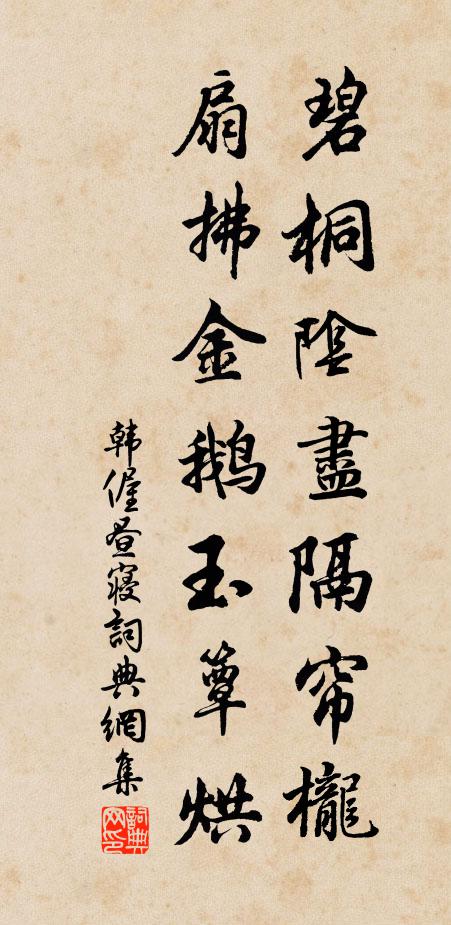 碧桐陰盡隔帘櫳
扇拂金鵝玉簟烘
韩偓昼寝詞典網集
詞典网印